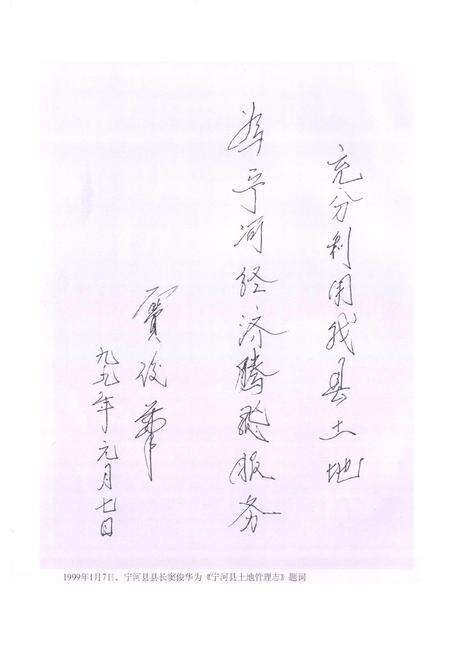 充分利用我县土地
为宁河经济腾飞服务
窦俊华
九九年元月七日
1999年1月7日，宁河县县长窦俊华为《宁河县土地管理志》题词